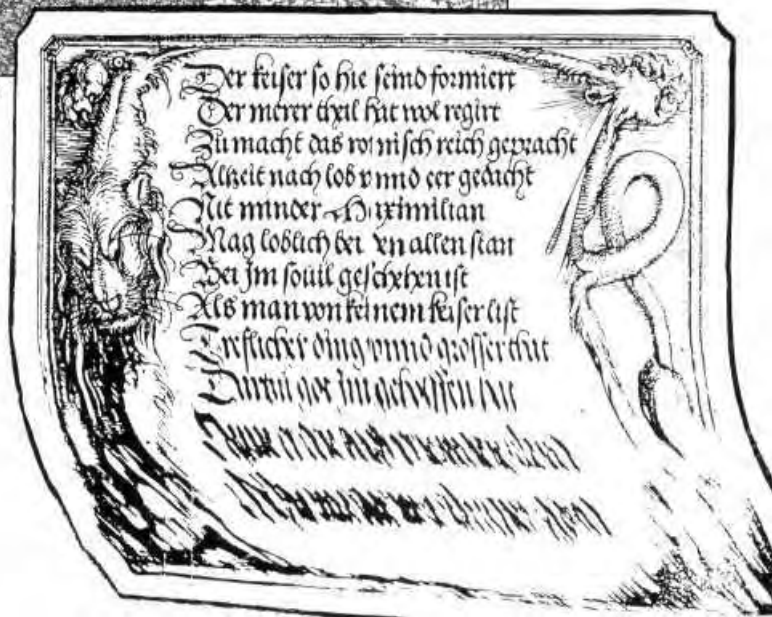 Der keiser so hie seind formiert
Der merer theil hat wol regirt
Zu macht das romisch reich gepracht
Altzeit nach lob vnnd eer gedacht
Nit minder Maximilian
Mag loblich bei yn allen stan
Bei Im souil geschehen ist
Als man von keinem keiser list
Treflicher ding vnnd grosser that
Darbii got Im geholffen hat